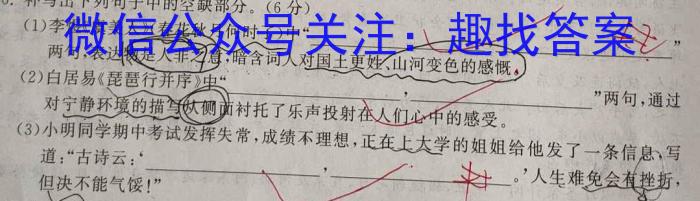 补写出下列句子中的空缺部分。(6分)
微信公众号关注：趣找答案
(1)李煜
何时
中“
”
两句，表达物是人非之意，暗含词人对国土更姓、山河变色的感慨。
(2)白居易《琵琶行并序》中“____，____”两句，通过
对宁静环境的描写从侧面衬托了乐声投射在人们心中的感受。
(3)小明同学期中考试发挥失常，成绩不理想，正在上大学的姐姐给他发了一条信息，写
道：“古诗云：‘____，____。’人生难免会有挫折，
但决不能气馁！”